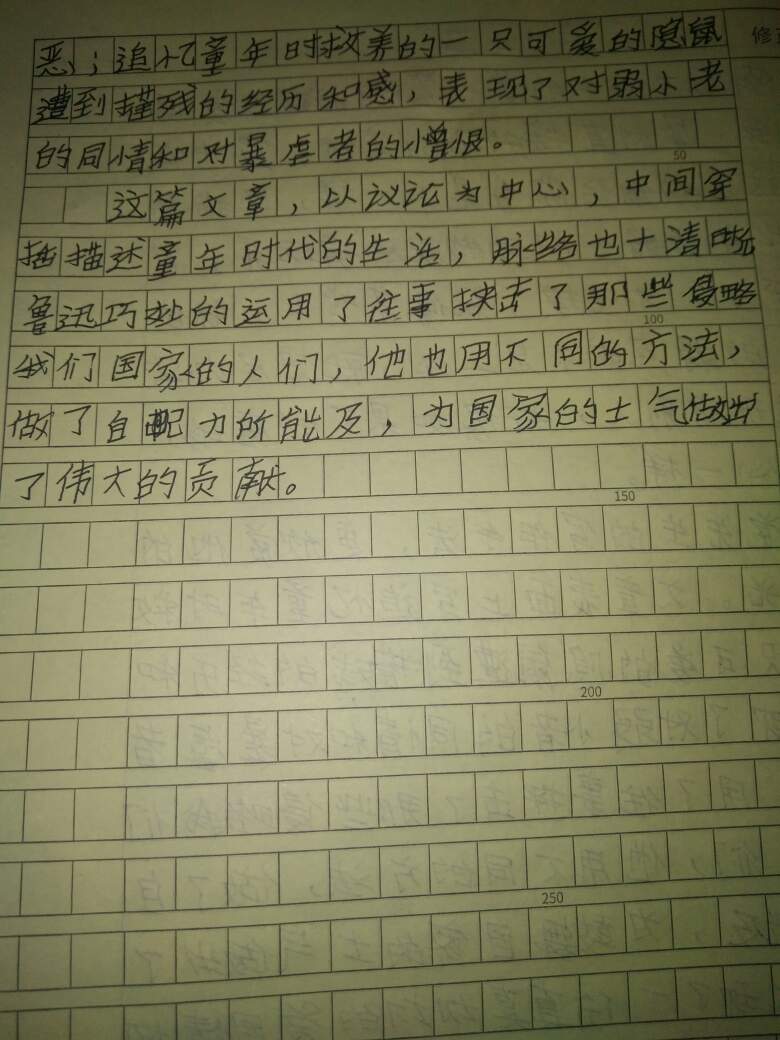 恶；追忆童年时救养的一只可爱的隐鼠 修
遭到摧残的经历和感，表现了对弱小老
的同情和对暴虐者的憎恨。
50
这篇文章，以议论为中心，中间穿
插描述童年时代的生活，脉络也十清晰
100
鲁迅巧妙的运用了往事抉击了那些侵略
我们国家的人们，他也用不同的方法，
做了自配力所能及，为国家的士气做出
了伟大的贡献。
150
200
250